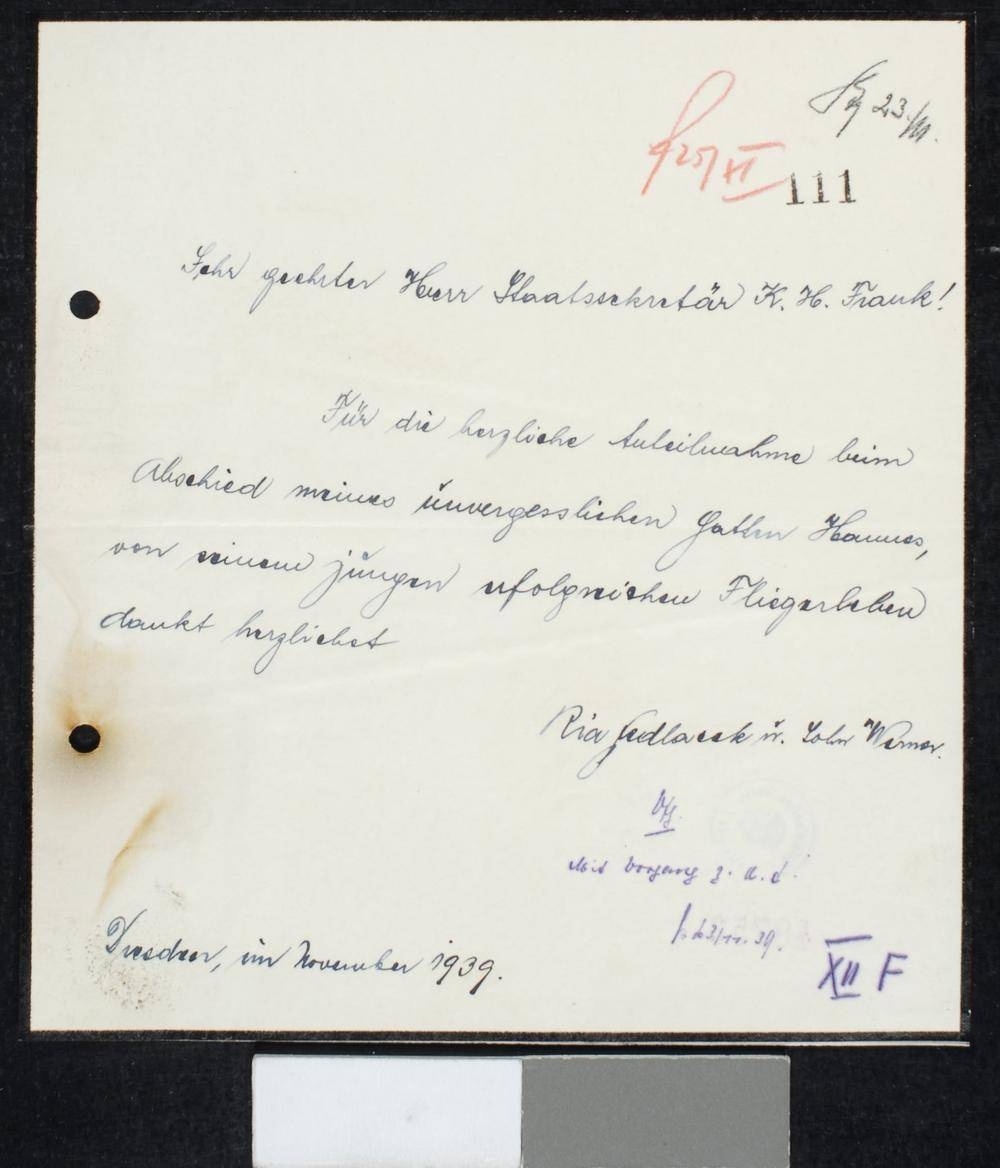 23/XI.
25/XI
111
Sehr geehrter Herr Staatssekretär K. H. Frank!
Für die herzliche Anteilnahme beim
Abschied meines unvergesslichen Gatten Hannes,
von seinem jungen erfolgreichen Fliegerleben
dankt herzlichst
Ria Sedlacek u. Sohn Werner.
Vfg.
Mit Vorgang z. d. A.
23/11. 39.
Dresden, im November 1939.
XII F